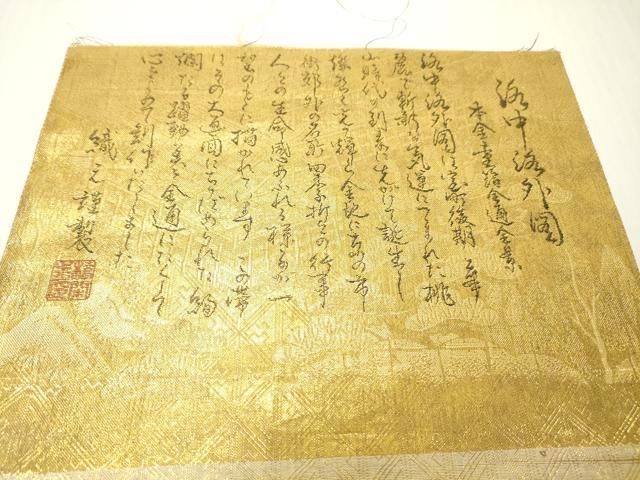 洛中洛外図
本金箔全通全景
洛中洛外図は室町後期 華
麗で斬新な気運につつまれた桃
山時代の到来に先がけて誕生し
光り輝く金地に
都郊外の名所 四季折々の行事
人々の生命感あふれる様子が一
望のもとに描かれています この帯
はその大画面にちりばめられた絢
爛たる躍動美を全通にたくして
心をこめて製作いたしました
織元 謹製